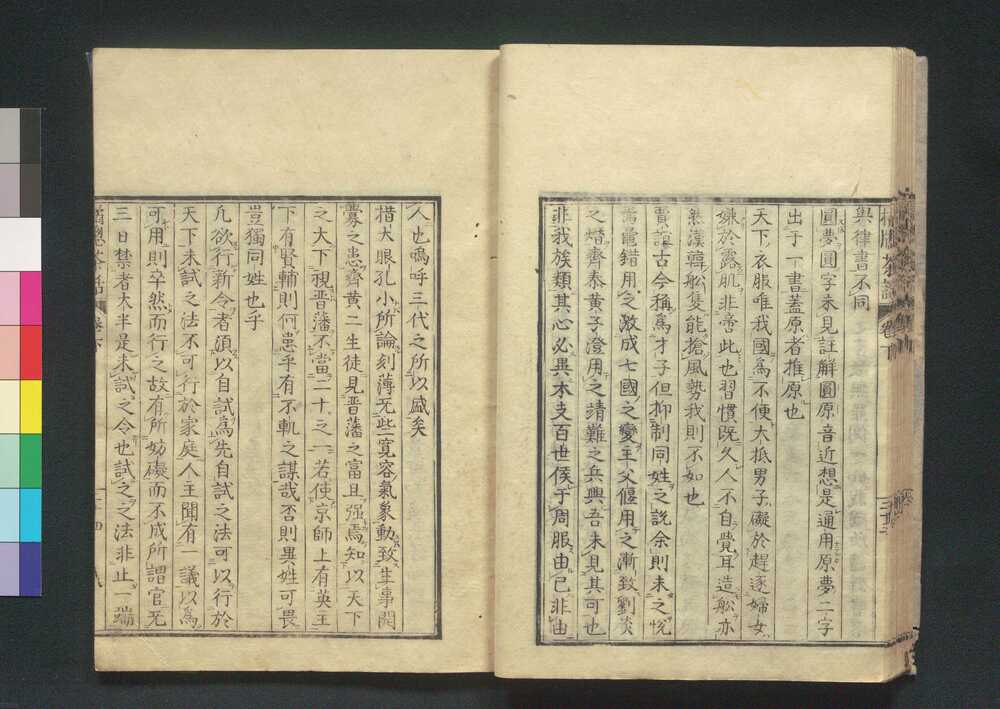 與律書不同
圓夢圓字未見註解圓原音近想是通用原夢二字
出于一書蓋原者推原也
天下衣服唯我國為不便大抵男子礙於趕逐婦女
嫌於露肌非啻此也習慣既久人不自覺耳造舩亦
然漢舩隻能搶風勢我則不如也
賈誼古今稱為才子但抑制同姓之說余則未之悅
錯用之激成七國之變主父偃用之漸致劉
之齊泰黃子澄用之靖難之兵興吾未見其可也
非我族類其心必異本支百世侯于周服由己非由
人也嗚呼三代之所以盛矣
措大眼孔小所論刻薄无些寬容氣象動致生事開
釁之患齊黃二生徒見晋藩之富且强焉知以天下
之大下視晋藩不當二十之一若使京師上有英主
下有賢輔則何患乎有不軌之謀哉否則異姓可畏
豈獨同姓也乎
凢欲行新令者須以自試為先自試之法可以行於
天下未試之法不可行於家庭人主聞有一議以為
可用則卒然而行之故有所妨礙而不成所謂官无
三日禁者大半是未試之令也試之之法非止一端